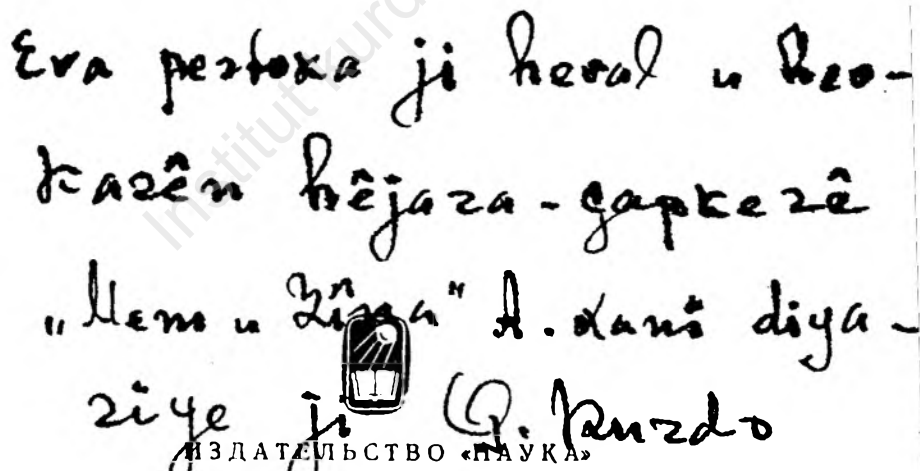 Institut kurd
Eva pertoka ji heval u hev-
karên hêjara-çapkerê
„Mem u Zîna" A. Xanî diya-
riye ji Q. Kurdo
ИЗДАТЕЛЬСТВО «НАУКА»